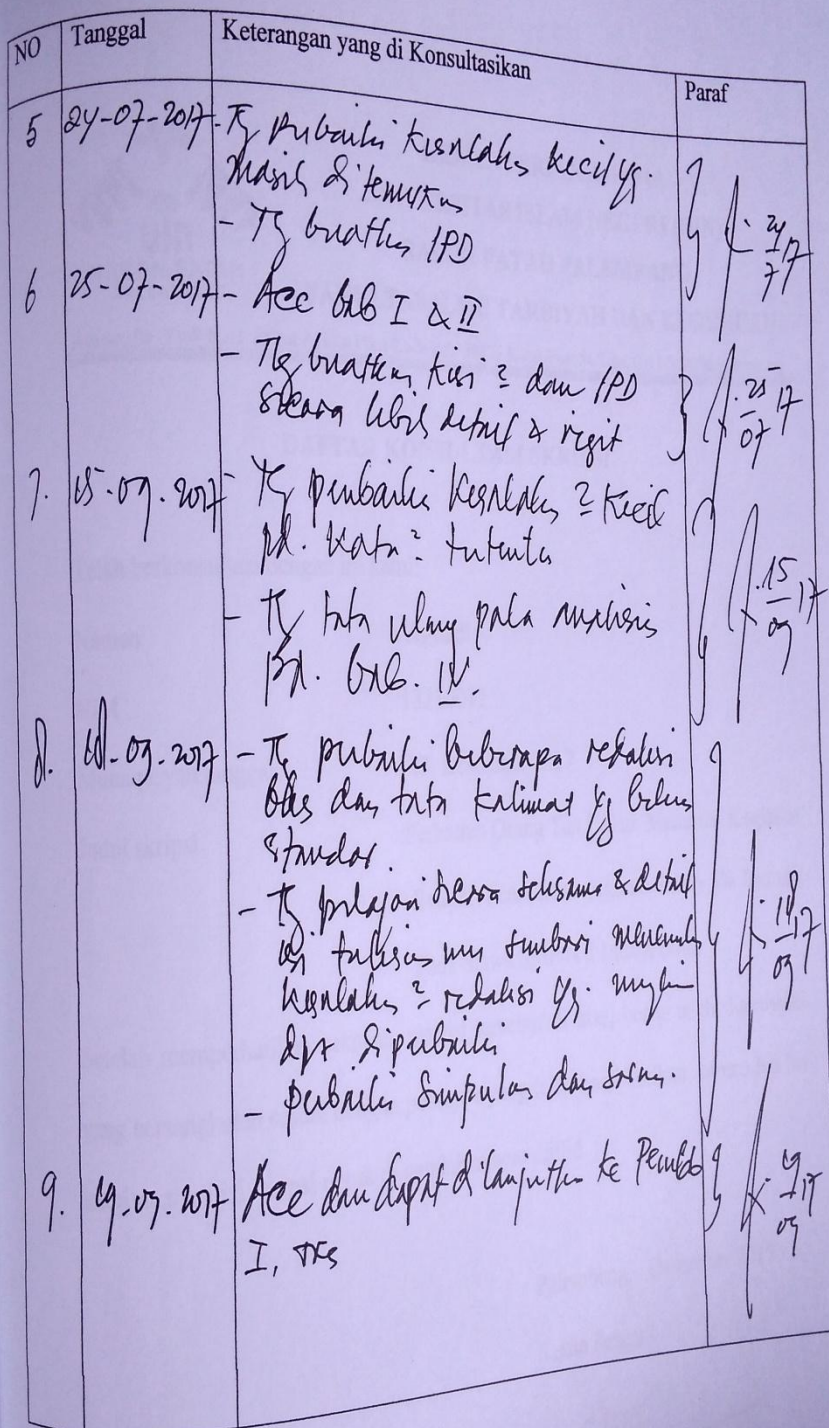 NO Tanggal Keterangan yang di Konsultasikan Paraf
5 24-07-2017 - Tg perbaiki kesalahan kecil yg.
masih ditemukan
- Tg buatkan IPD
24/7 17
6 25-07-2017 - Acc bab I & II
- Tg buatkan kisi2 dan IPD
secara lebih detail & rigit
25/07 17
7. 15-09-2017 - Tg perbaiki kesalahan2 kecil
pd. kata2 tertentu
- Tg tata ulang pola analisis
pd. bab. IV.
15/09 17
8. 18-09-2017 - Tg perbaiki beberapa redaksi
bhs dan tata kalimat yg belum
standar.
- Tg pelajari secara seksama & detail
isi tulisan mu sembari menemukan
kesalahan2 redaksi yg. mungkin
dpt diperbaiki
- perbaiki simpulan dan saran.
18/09 17
9. 19-09-2017 Acc dan dapat dilanjutkan ke Pembb
I, tks
19/09 17